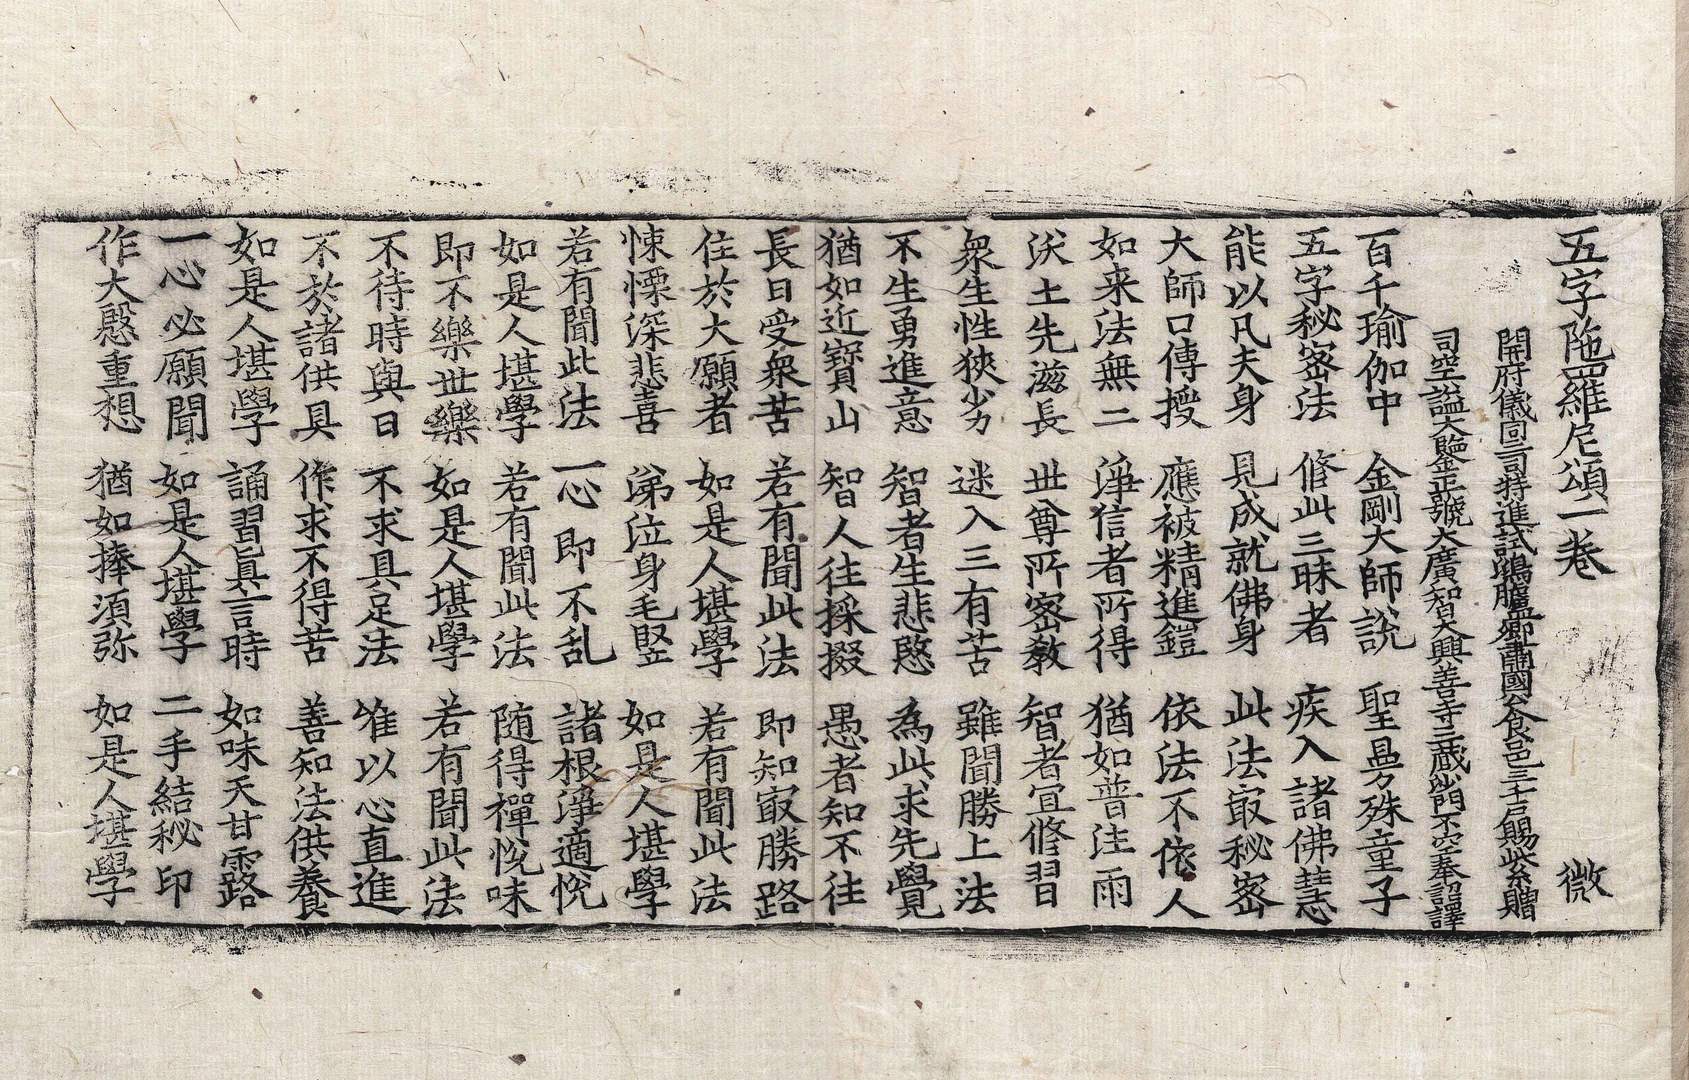 五字陁羅尼頌一卷 微
開府儀同三司特進試鴻臚卿肅國公食邑三千戶賜紫贈
司空謚大鑒正號大廣智大興善寺三蔵沙門不空奉詔譯
百千瑜伽中 金剛大師說 聖曼殊童子
五字秘密法 修此三昧者 疾入諸佛慧
能以凡夫身 見成就佛身 此法㝡秘密
大師口傳授 應被精進鎧 依法不依人
如来法無二 淨信者所得 猶如普注雨
沃土先滋長 世尊所密教 智者宜修習
衆生性狹劣 迷入三有苦 雖聞勝上法
不生勇進意 智者生悲愍 為此求先覺
猶如近寶山 智人往採掇 愚者知不往
長日受衆苦 若有聞此法 即知㝡勝路
住於大願者 如是人堪學 若有聞此法
悚慄深悲喜 涕泣身毛竪 如是人堪學
若有聞此法 一心即不乱 諸根淨適悅
如是人堪學 若有聞此法 随得禪悅味
即不樂世樂 如是人堪學 若有聞此法
不待時與日 不求具足法 唯以心直進
不於諸供具 作求不得苦 善知法供養
如是人堪學 誦習真言時 如味天甘露
一心必願聞 如是人堪學 二手結秘印
作大慇重想 猶如捧須弥 如是人堪學